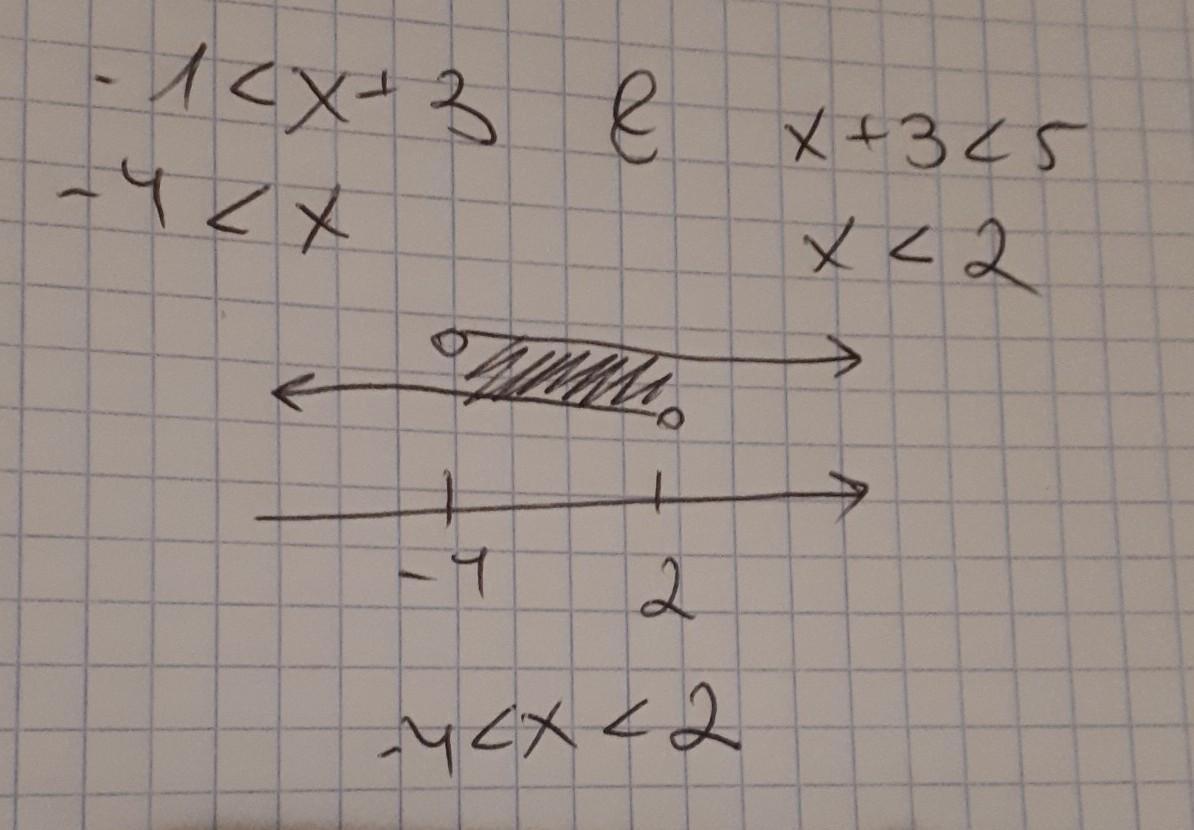 -1 < x + 3 e x + 3 < 5
-4 < x x < 2
-4 2
-4 < x < 2